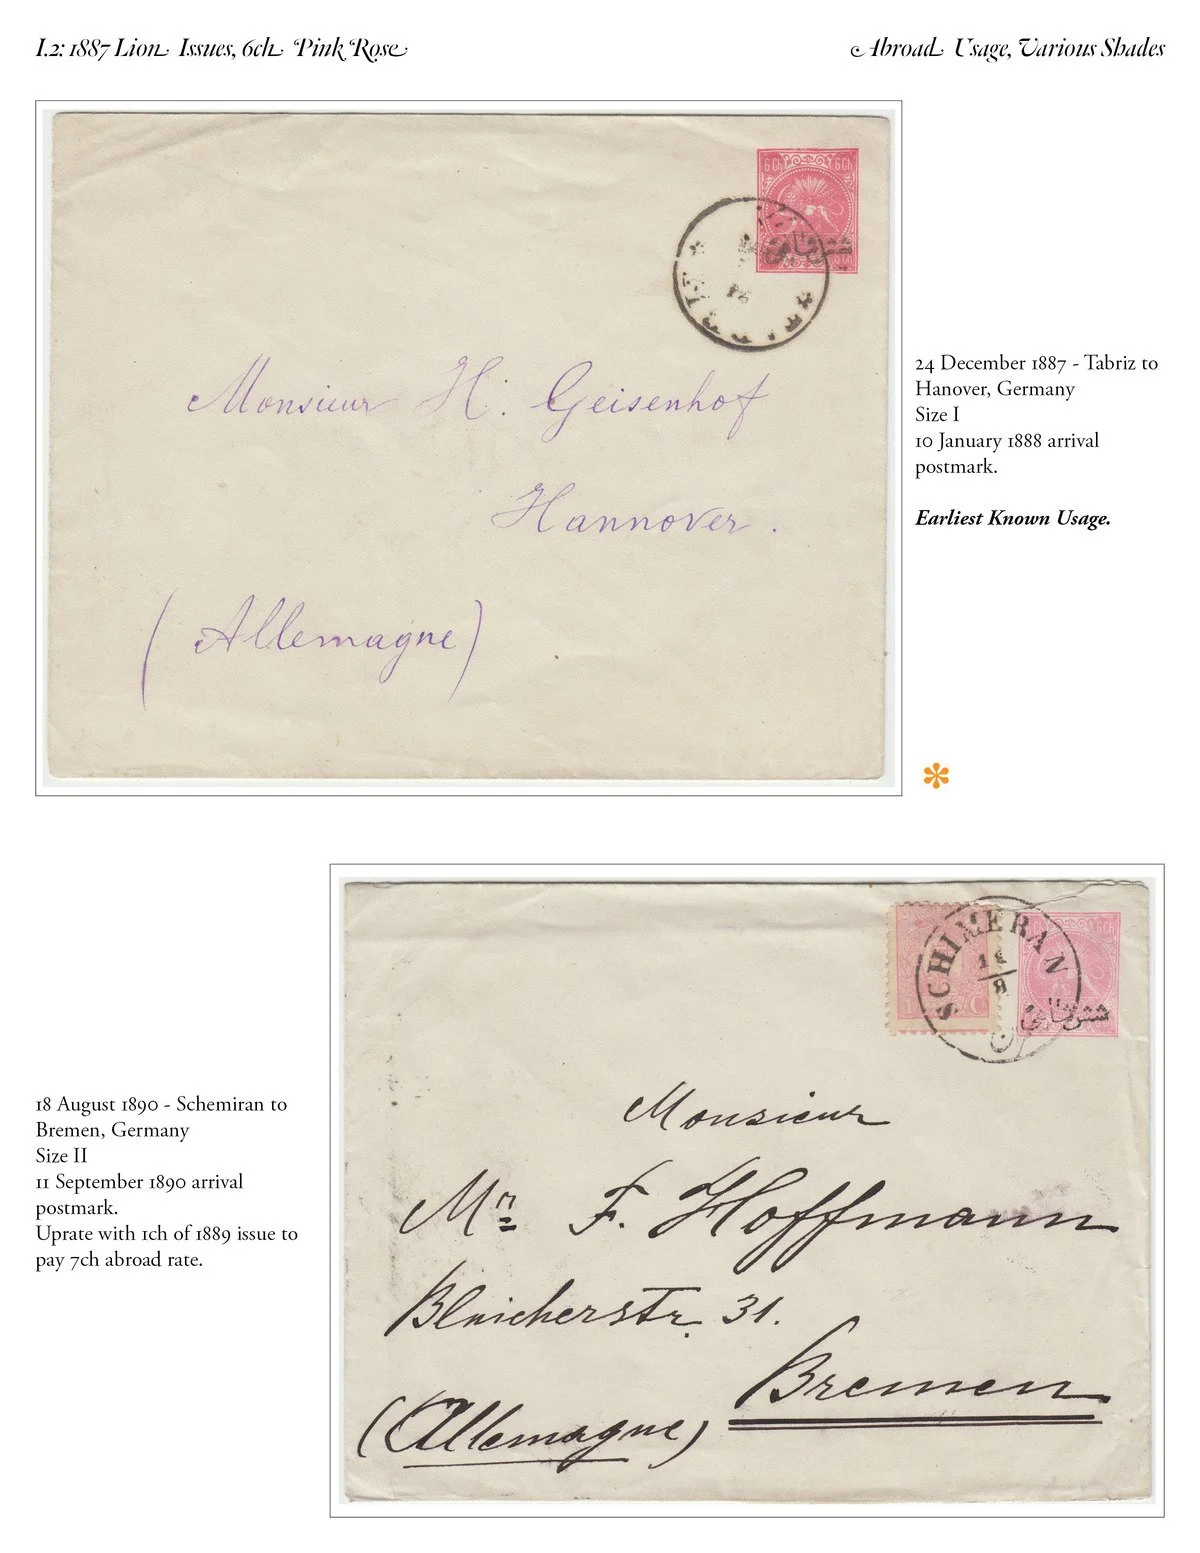 I.2: 1887 Lion Issues, 6ch Pink Rose
Abroad Usage, Various Shades
6 Ch 6 Ch
Monsieur H. Geisenhof
Hannover.
(Allemagne)
24 December 1887 - Tabriz to
Hanover, Germany
Size I
10 January 1888 arrival
postmark.
Earliest Known Usage.
SCHIMERAN
8
1 C
6 Ch
شش شاهی
Monsieur
Mr F. Hoffmann
31.
Bremen
(Allemagne)
18 August 1890 - Schemiran to
Bremen, Germany
Size II
11 September 1890 arrival
postmark.
Uprate with 1ch of 1889 issue to
pay 7ch abroad rate.